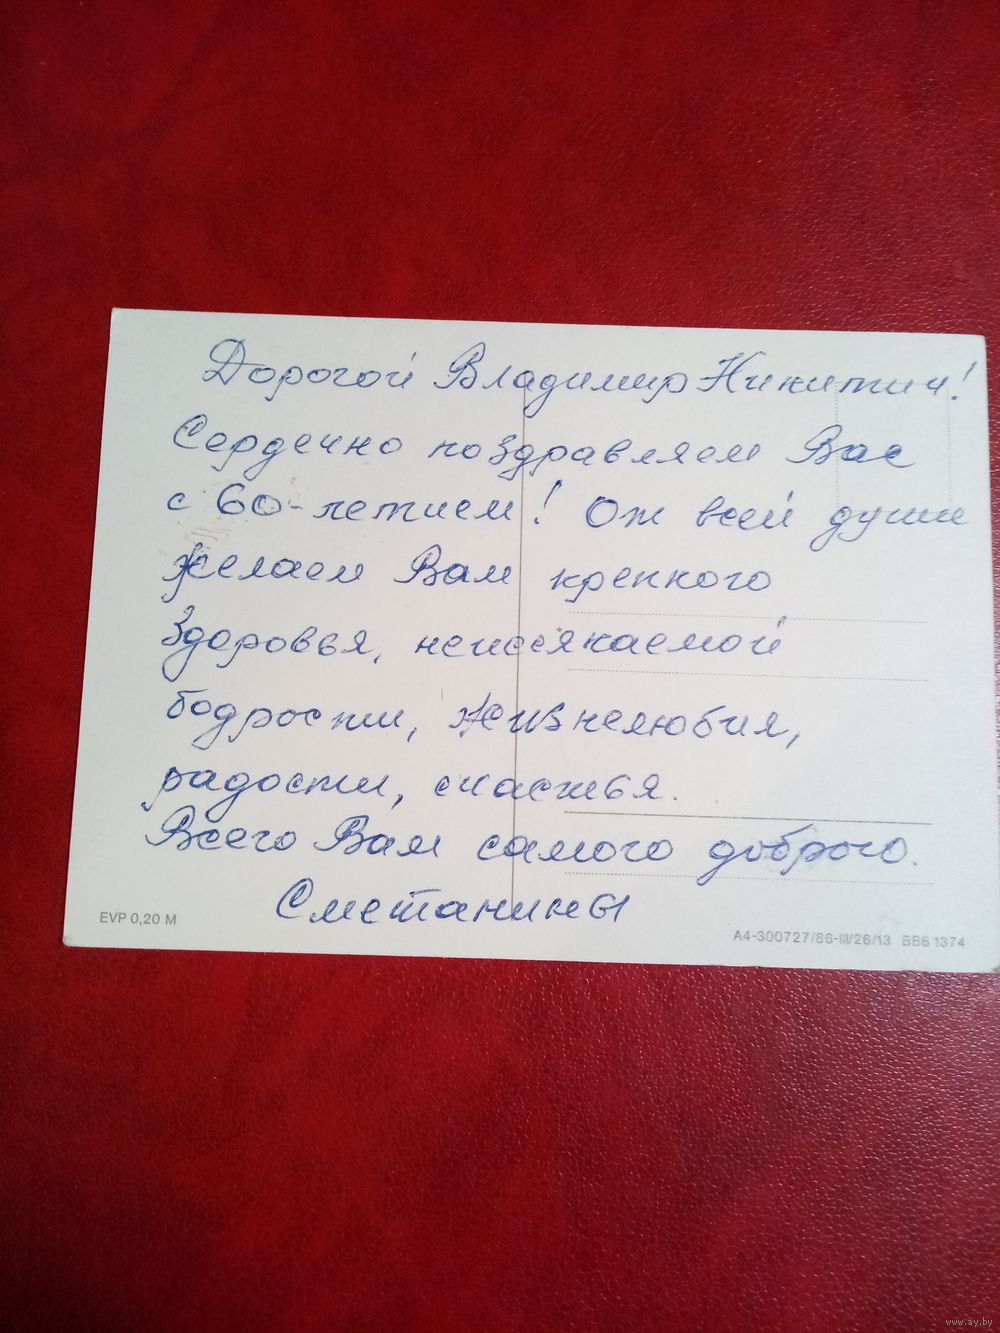 Дорогой Владимир Никитич!
Сердечно поздравляем Вас
с 60-летием! От всей души
желаем Вам крепкого
здоровья, неиссякаемой
бодрости, жизнелюбия,
радости, счастья.
Всего Вам самого доброго.
Сметанины
EVP 0,20 M
A4-300727/86-III/26/13 BB6 1374
www.ay.by